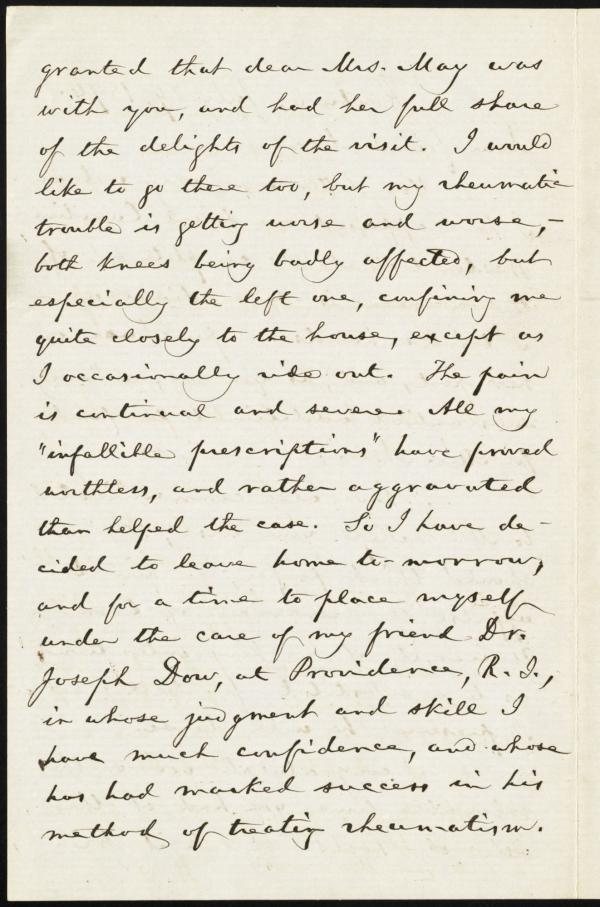 granted that dear Mrs. May was
with you, and had her full share
of the delights of the visit. I would
like to go there too, but my rheumatic
trouble is getting worse and worse,—
both knees being badly affected, but
especially the left one, confining me
quite closely to the house, except as
I occasionally ride out. The pain
is continual and severe. All my
"infallible prescriptions" have proved
worthless, and rather aggravated
than helped the case. So I have de-
cided to leave home to-morrow,
and for a time to place myself
under the care of my friend Dr.
Joseph Dow, at Providence, R. I.,
in whose judgment and skill I
have much confidence, and whose
has had marked success in his
method of treating rheumatism.